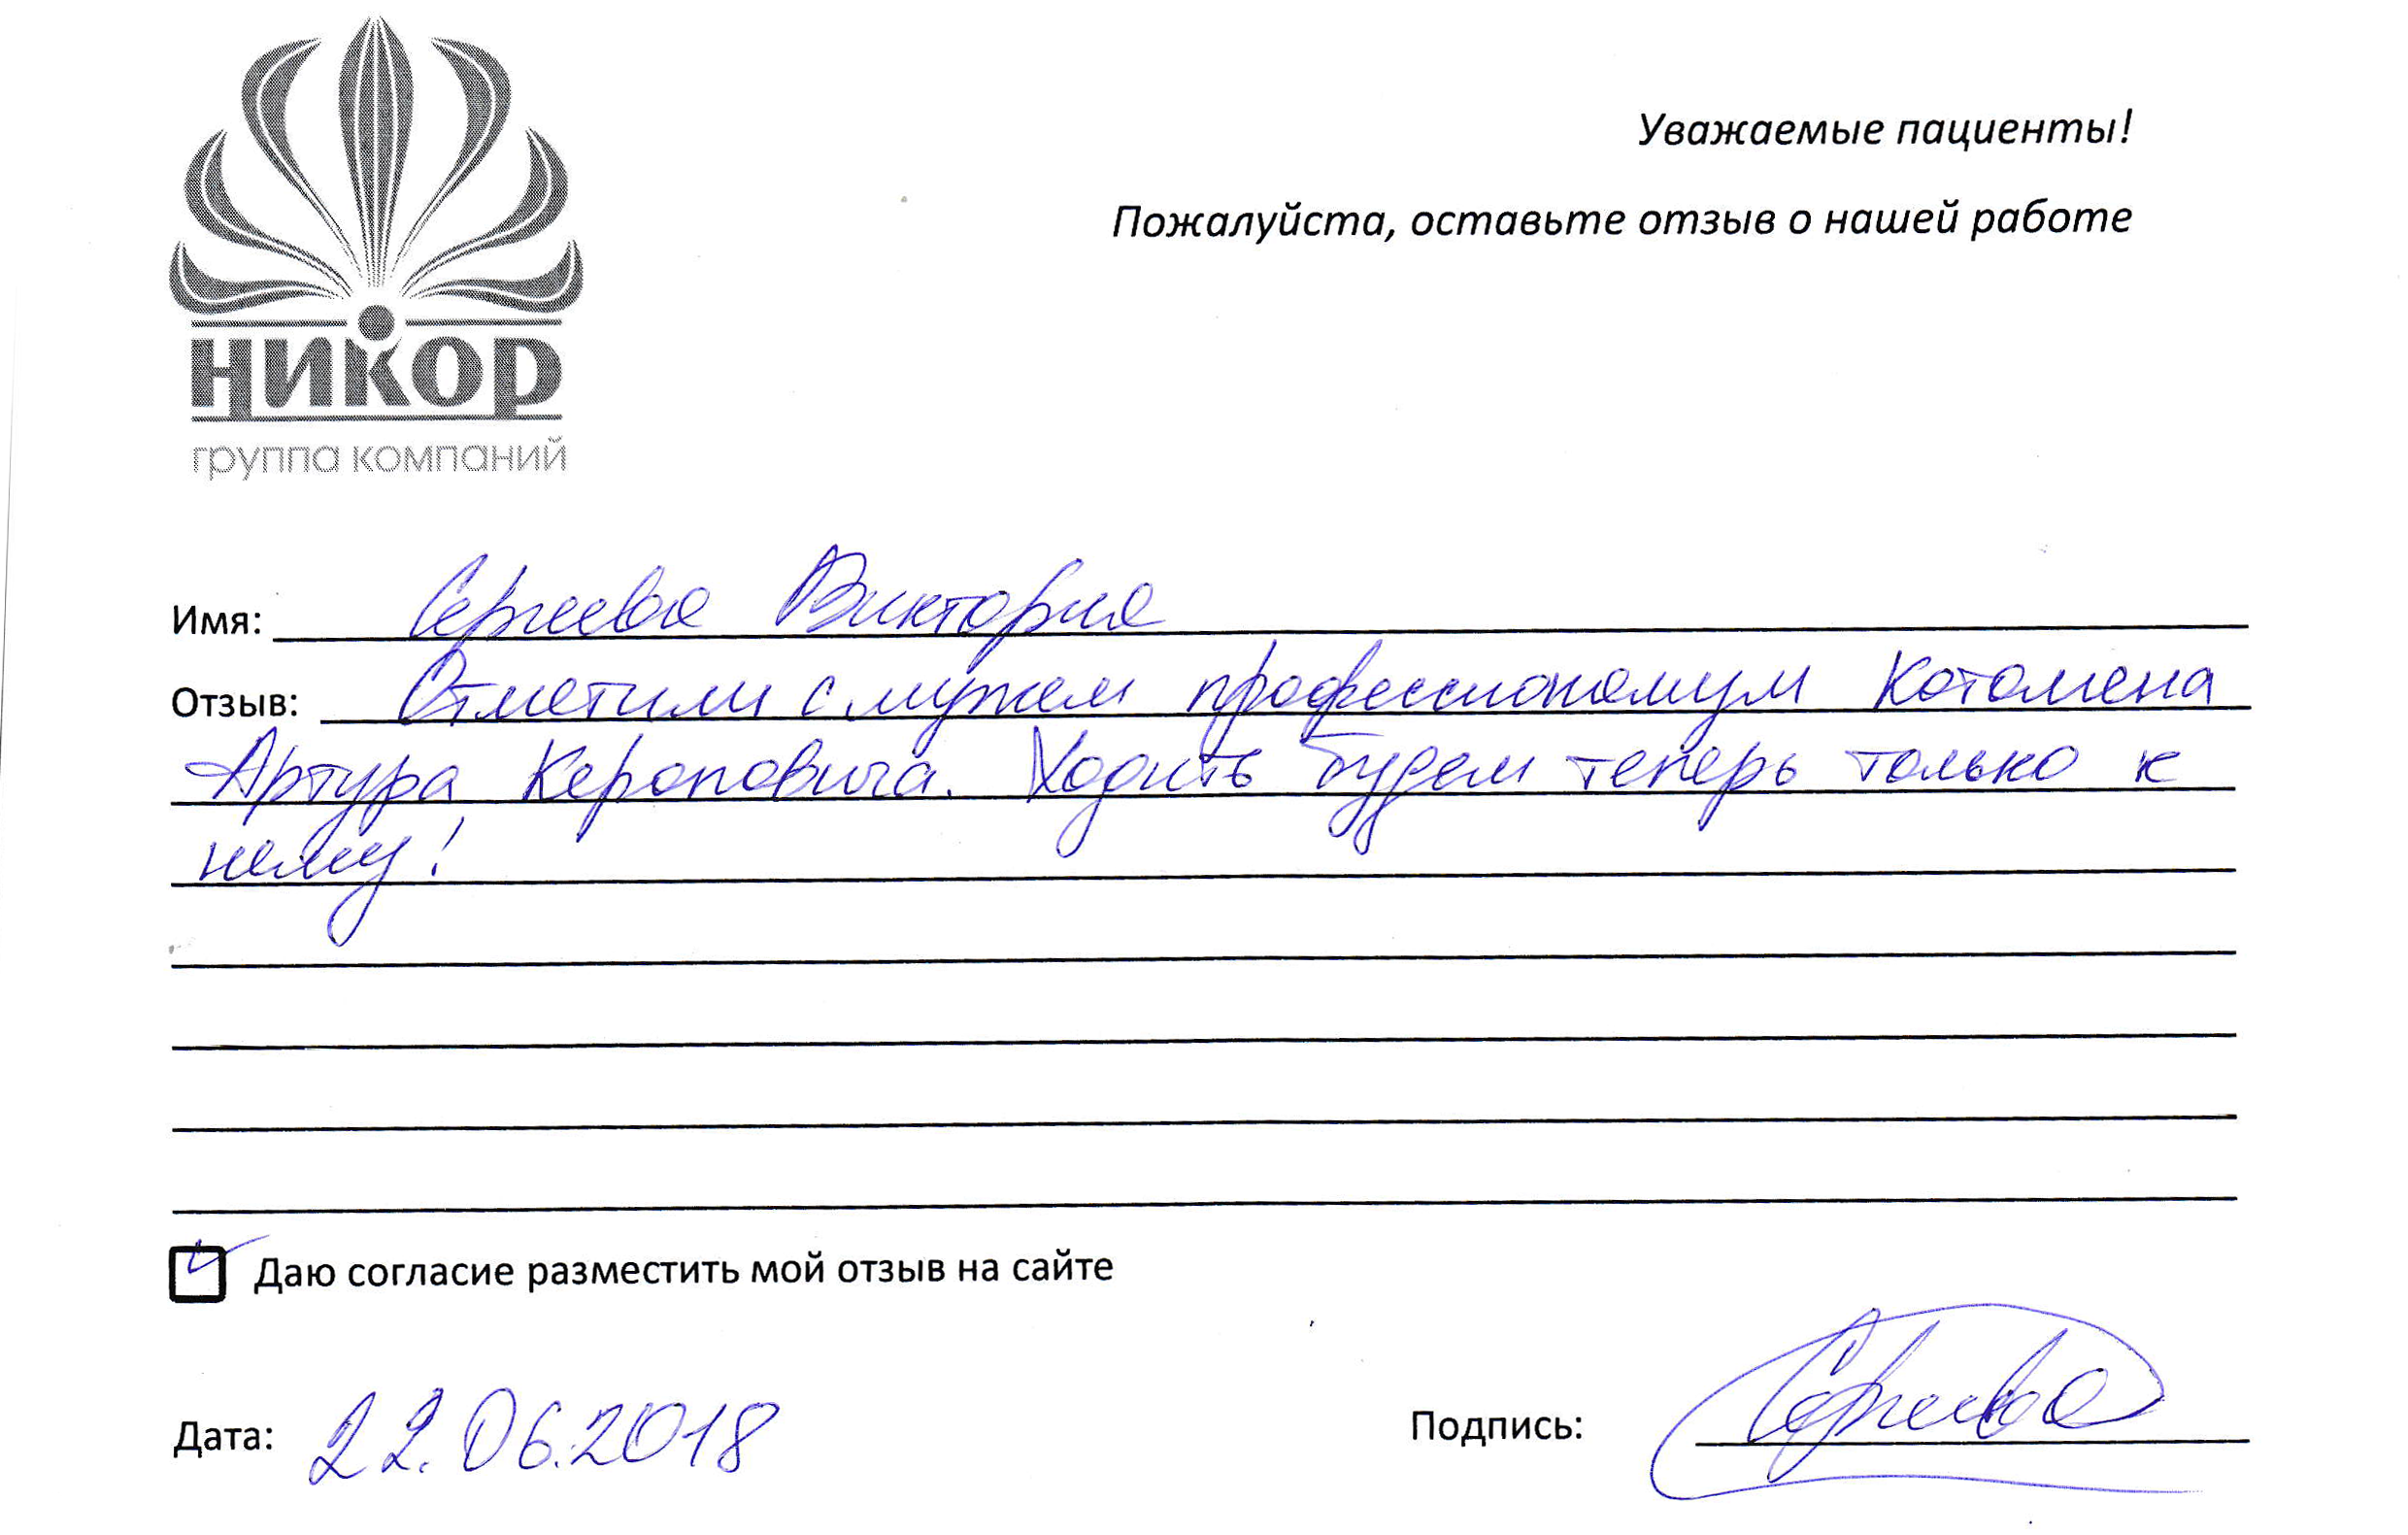 Уважаемые пациенты!
Пожалуйста, оставьте отзыв о нашей работе
НИКОР
группа компаний
Имя: Сергеева Виктория
Отзыв: Отметили с мужем профессионализм Котомена
Артура Кероповича. Ходить будем теперь только к
нему!
Даю согласие разместить мой отзыв на сайте
Дата: 22.06.2018
Подпись: Сергеева